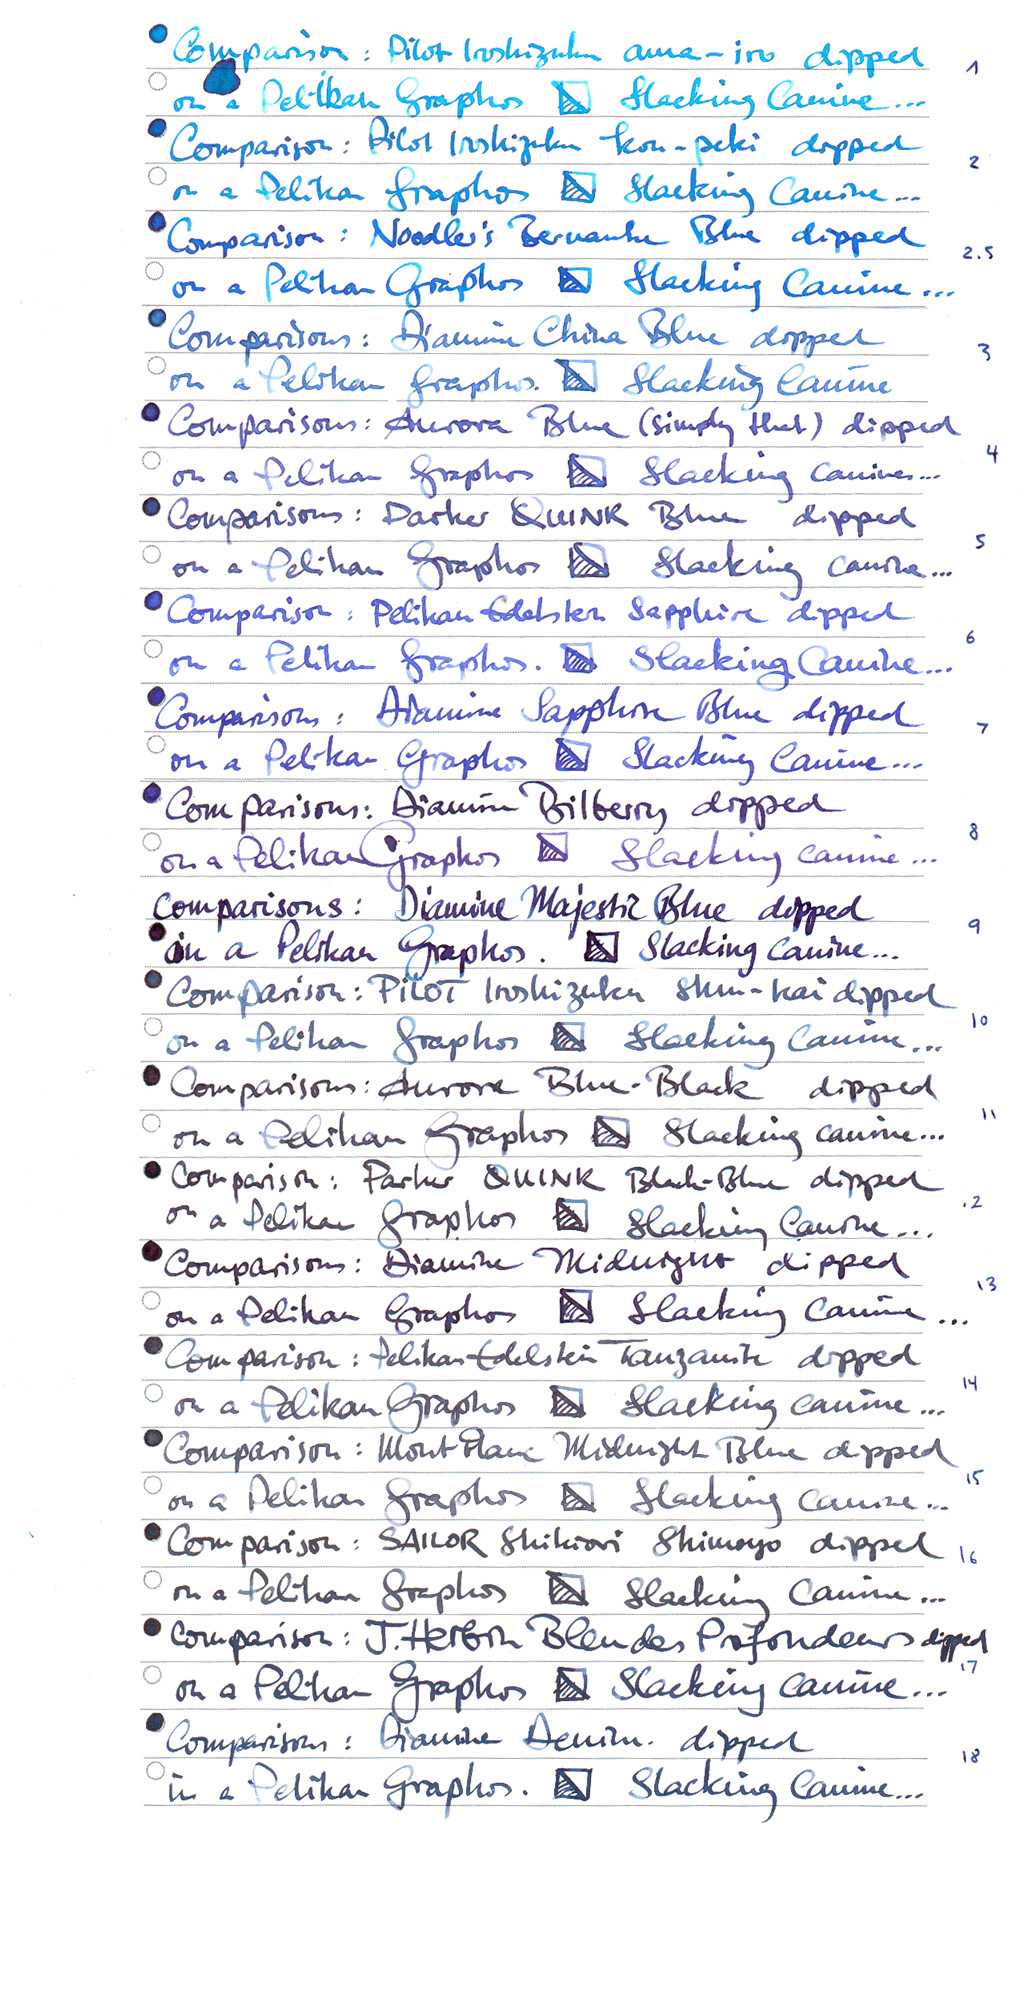 Comparison: Pilot Iroshizuku ama-iro dipped 1
on a Pelikan Graphos Slacking Canine...
Comparison: Pilot Iroshizuku kon-peki dipped 2
on a Pelikan Graphos Slacking Canine...
Comparison: Noodler's Bernanke Blue dipped 2.5
on a Pelikan Graphos Slacking Canine...
Comparisons: Diamine China Blue dipped 3
on a Pelikan Graphos. Slacking Canine
Comparisons: Aurora Blue (simply that) dipped 4
on a Pelikan Graphos Slacking canines...
Comparisons: Parker QUINK Blue dipped 5
on a Pelikan Graphos Slacking canine...
Comparison: Pelikan Edelstein Sapphire dipped 6
on a Pelikan Graphos. Slacking Canine...
Comparisons: Diamine Sapphire Blue dipped 7
on a Pelikan Graphos Slacking Canine...
Comparisons: Diamine Bilberry dipped 8
on a Pelikan Graphos Slacking canine...
Comparisons: Diamine Majestic Blue dipped 9
in a Pelikan Graphos. Slacking Canine...
Comparison: PILOT Iroshizuku shin-kai dipped 10
on a Pelikan Graphos Slacking Canine...
Comparisons: Aurora Blue-Black dipped 11
on a Pelikan Graphos Slacking canine...
Comparison: Parker QUINK Black-Blue dipped .2
on a Pelikan Graphos Slacking Canine...
Comparisons: Diamine Midnight dipped 13
on a Pelikan Graphos Slacking Canine...
Comparison: Pelikan Edelstein Tanzanite dipped 14
on a Pelikan Graphos Slacking canine...
Comparison: Mont Blanc Midnight Blue dipped 15
on a Pelikan Graphos Slacking Canine...
Comparison: SAILOR Shikiori Shimoyo dipped 16
on a Pelikan Graphos Slacking Canine...
Comparison: J. Herbin Bleu des Profondeurs dipped 17
on a Pelikan Graphos Slacking Canine...
Comparisons: Diamine Denim. dipped 18
in a Pelikan Graphos. Slacking Canine...